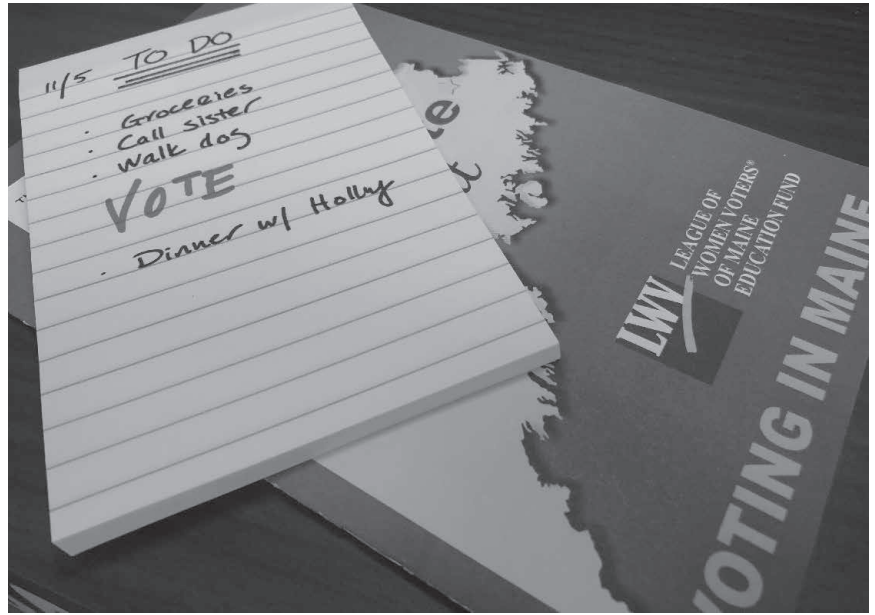 11/5 TO DO
· Groceries
· Call sister
· Walk dog
VOTE
· Dinner w/ Holly
LWV
LEAGUE OF
WOMEN VOTERS®
OF MAINE
EDUCATION FUND
VOTING IN MAINE